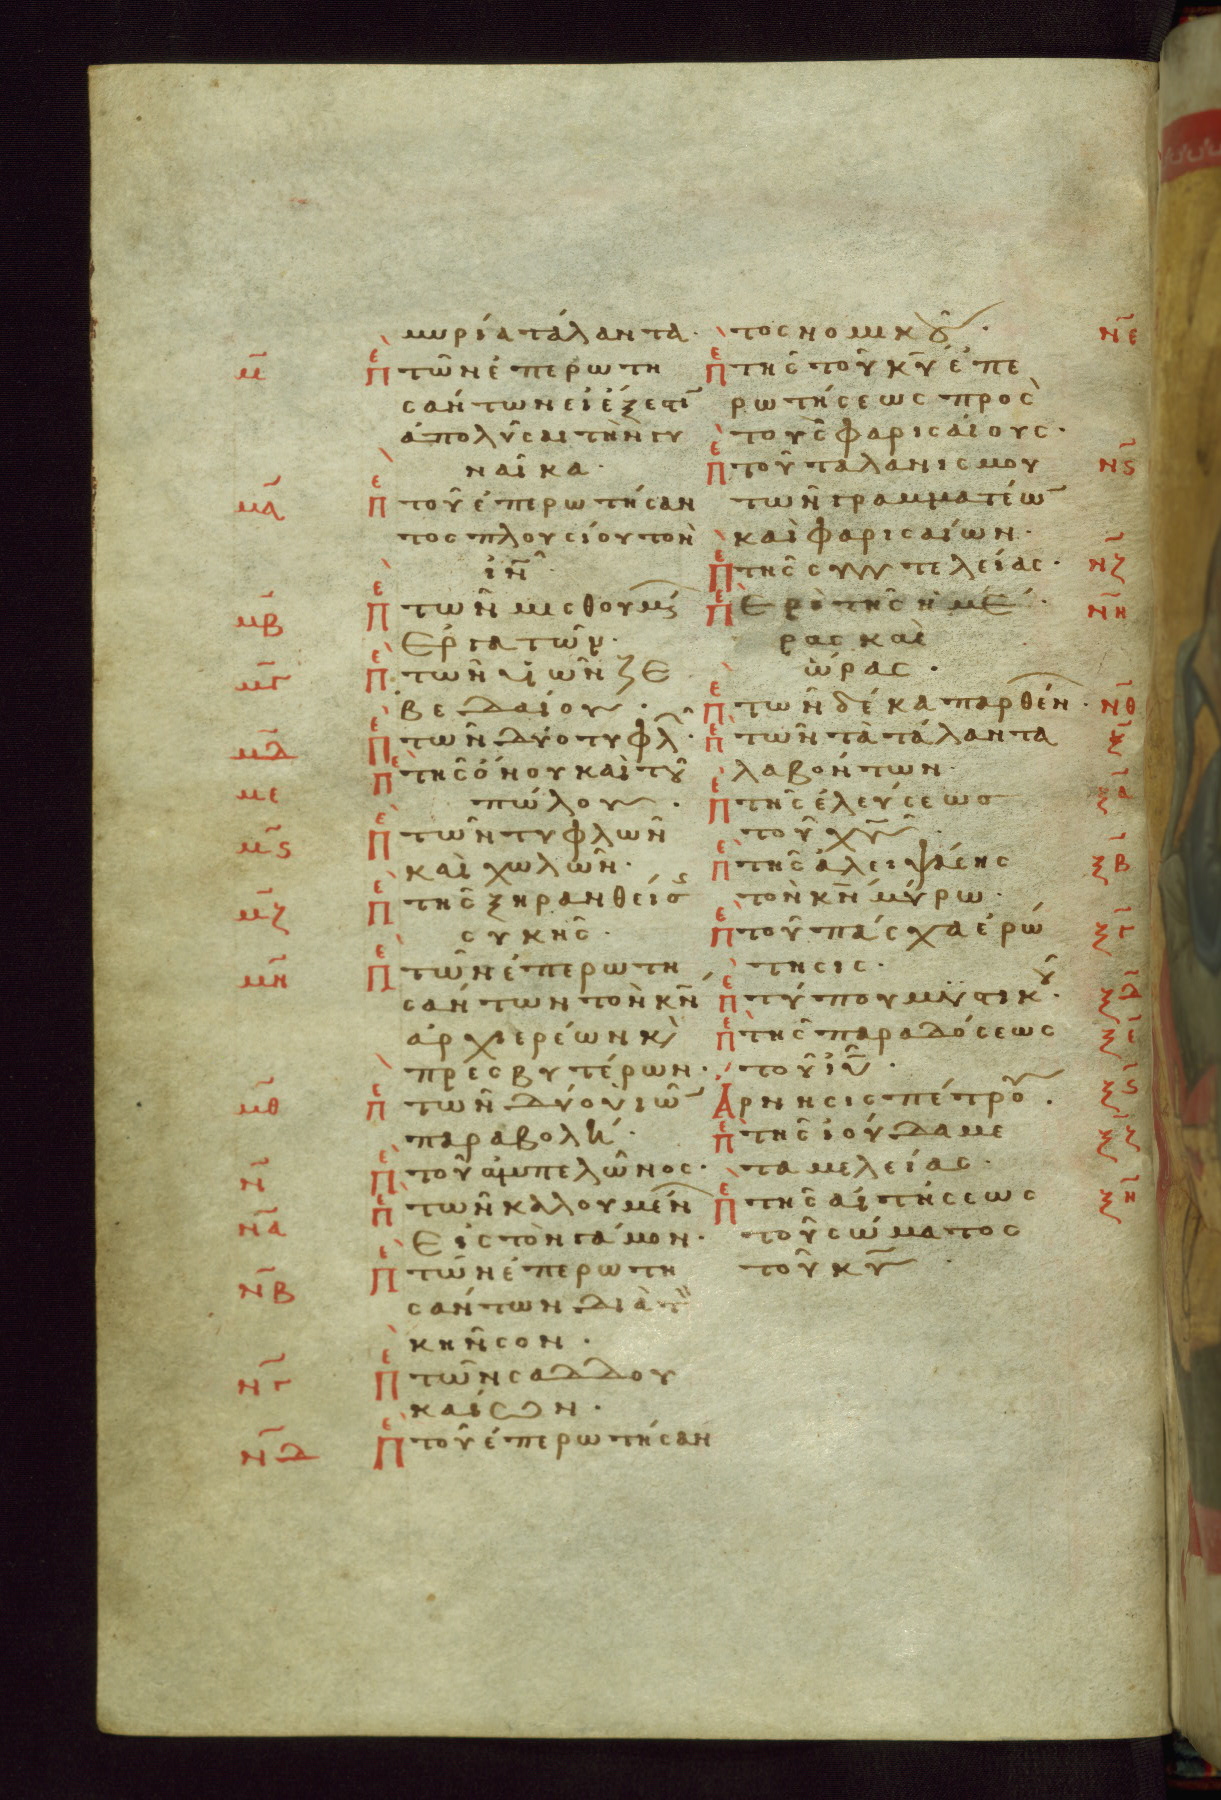 μυρία τάλαντα·
μ̄ Πε τῶν ἐπερωτη
σάντων εἰ ἔξεστι
ἀπολῦσαι τὴν γυ
ναῖκα·
μ̄α Πε τοῦ ἐπερωτήσαν
τος πλουσίου τὸν
ἰν̄·
μ̄β Πε τῶν μισθουμ
ἐργατῶν·
μ̄γ Πε τῶν υἱῶν ζε
βεδαίου·
μ̄δ Πε τῶν δύο τυφλ·
με Πε τῆς ὄνου καὶ τοῦ
πώλου·
μ̄ς Πε τῶν τυφλῶν
καὶ χωλῶν·
μ̄ζ Πε τῆς ξηρανθείσς
συκῆς·
μ̄η Πε τῶν ἐπερωτη
σάντων τὸν κ̄ν
ἀρχιερέων κ̀
πρεσβυτέρων·
μ̄θ Πε τῶν δύο υἱῶ
παραβολή·
ν̄ Πε τοῦ ἀμπελῶνος·
ν̄α Πε τῶν καλουμέν
εἰς τὸν γάμον·
ν̄β Πε τῶν ἐπερωτη
σάντων διὰ τ
κῆνσον·
ν̄γ Πε τῶν σαδδου
καίων·
ν̄δ Πε τοῦ ἐπερωτήσαν
τος νομικοῦ· ν̄ε
Πε τῆς τοῦ κ̄υ ἐπε
ρωτήσεως πρὸς
τοὺς φαρισαίους·
Πε τοῦ ταλανισμοῦ ν̄ς
τῶν γραμματέω
καὶ φαρισαίων·
Πε τῆς συντελείας· ν̄ζ
Πε ερὶ τῆς ἡμέ ν̄η
ρας καὶ
ὥρας·
Πε τῶν δέκα παρθέν· ν̄θ
Πε τῶν τὰ τάλαντα ξ̄
λαβόντων·
Πε τῆς ἐλεύσεως ξ̄α
τοῦ χ̄υ·
Πε τῆς ἀλειψάσης ξ̄β
τὸν κ̄ν μύρω·
Πε τοῦ πάσχα ἐρώ ξ̄γ
τησις·
Πε τύπου μυστικοῦ· ξ̄δ
Πε τῆς παραδόσεως ξ̄ε
τοῦ ἰ̄υ·
Αρνησις πέτρου· ξ̄ς
Πε τῆς ἰούδα με ξ̄ζ
ταμελείας·
Πε τῆς αἰτήσεως ξ̄η
τοῦ σώματος
τοῦ κ̄υ·